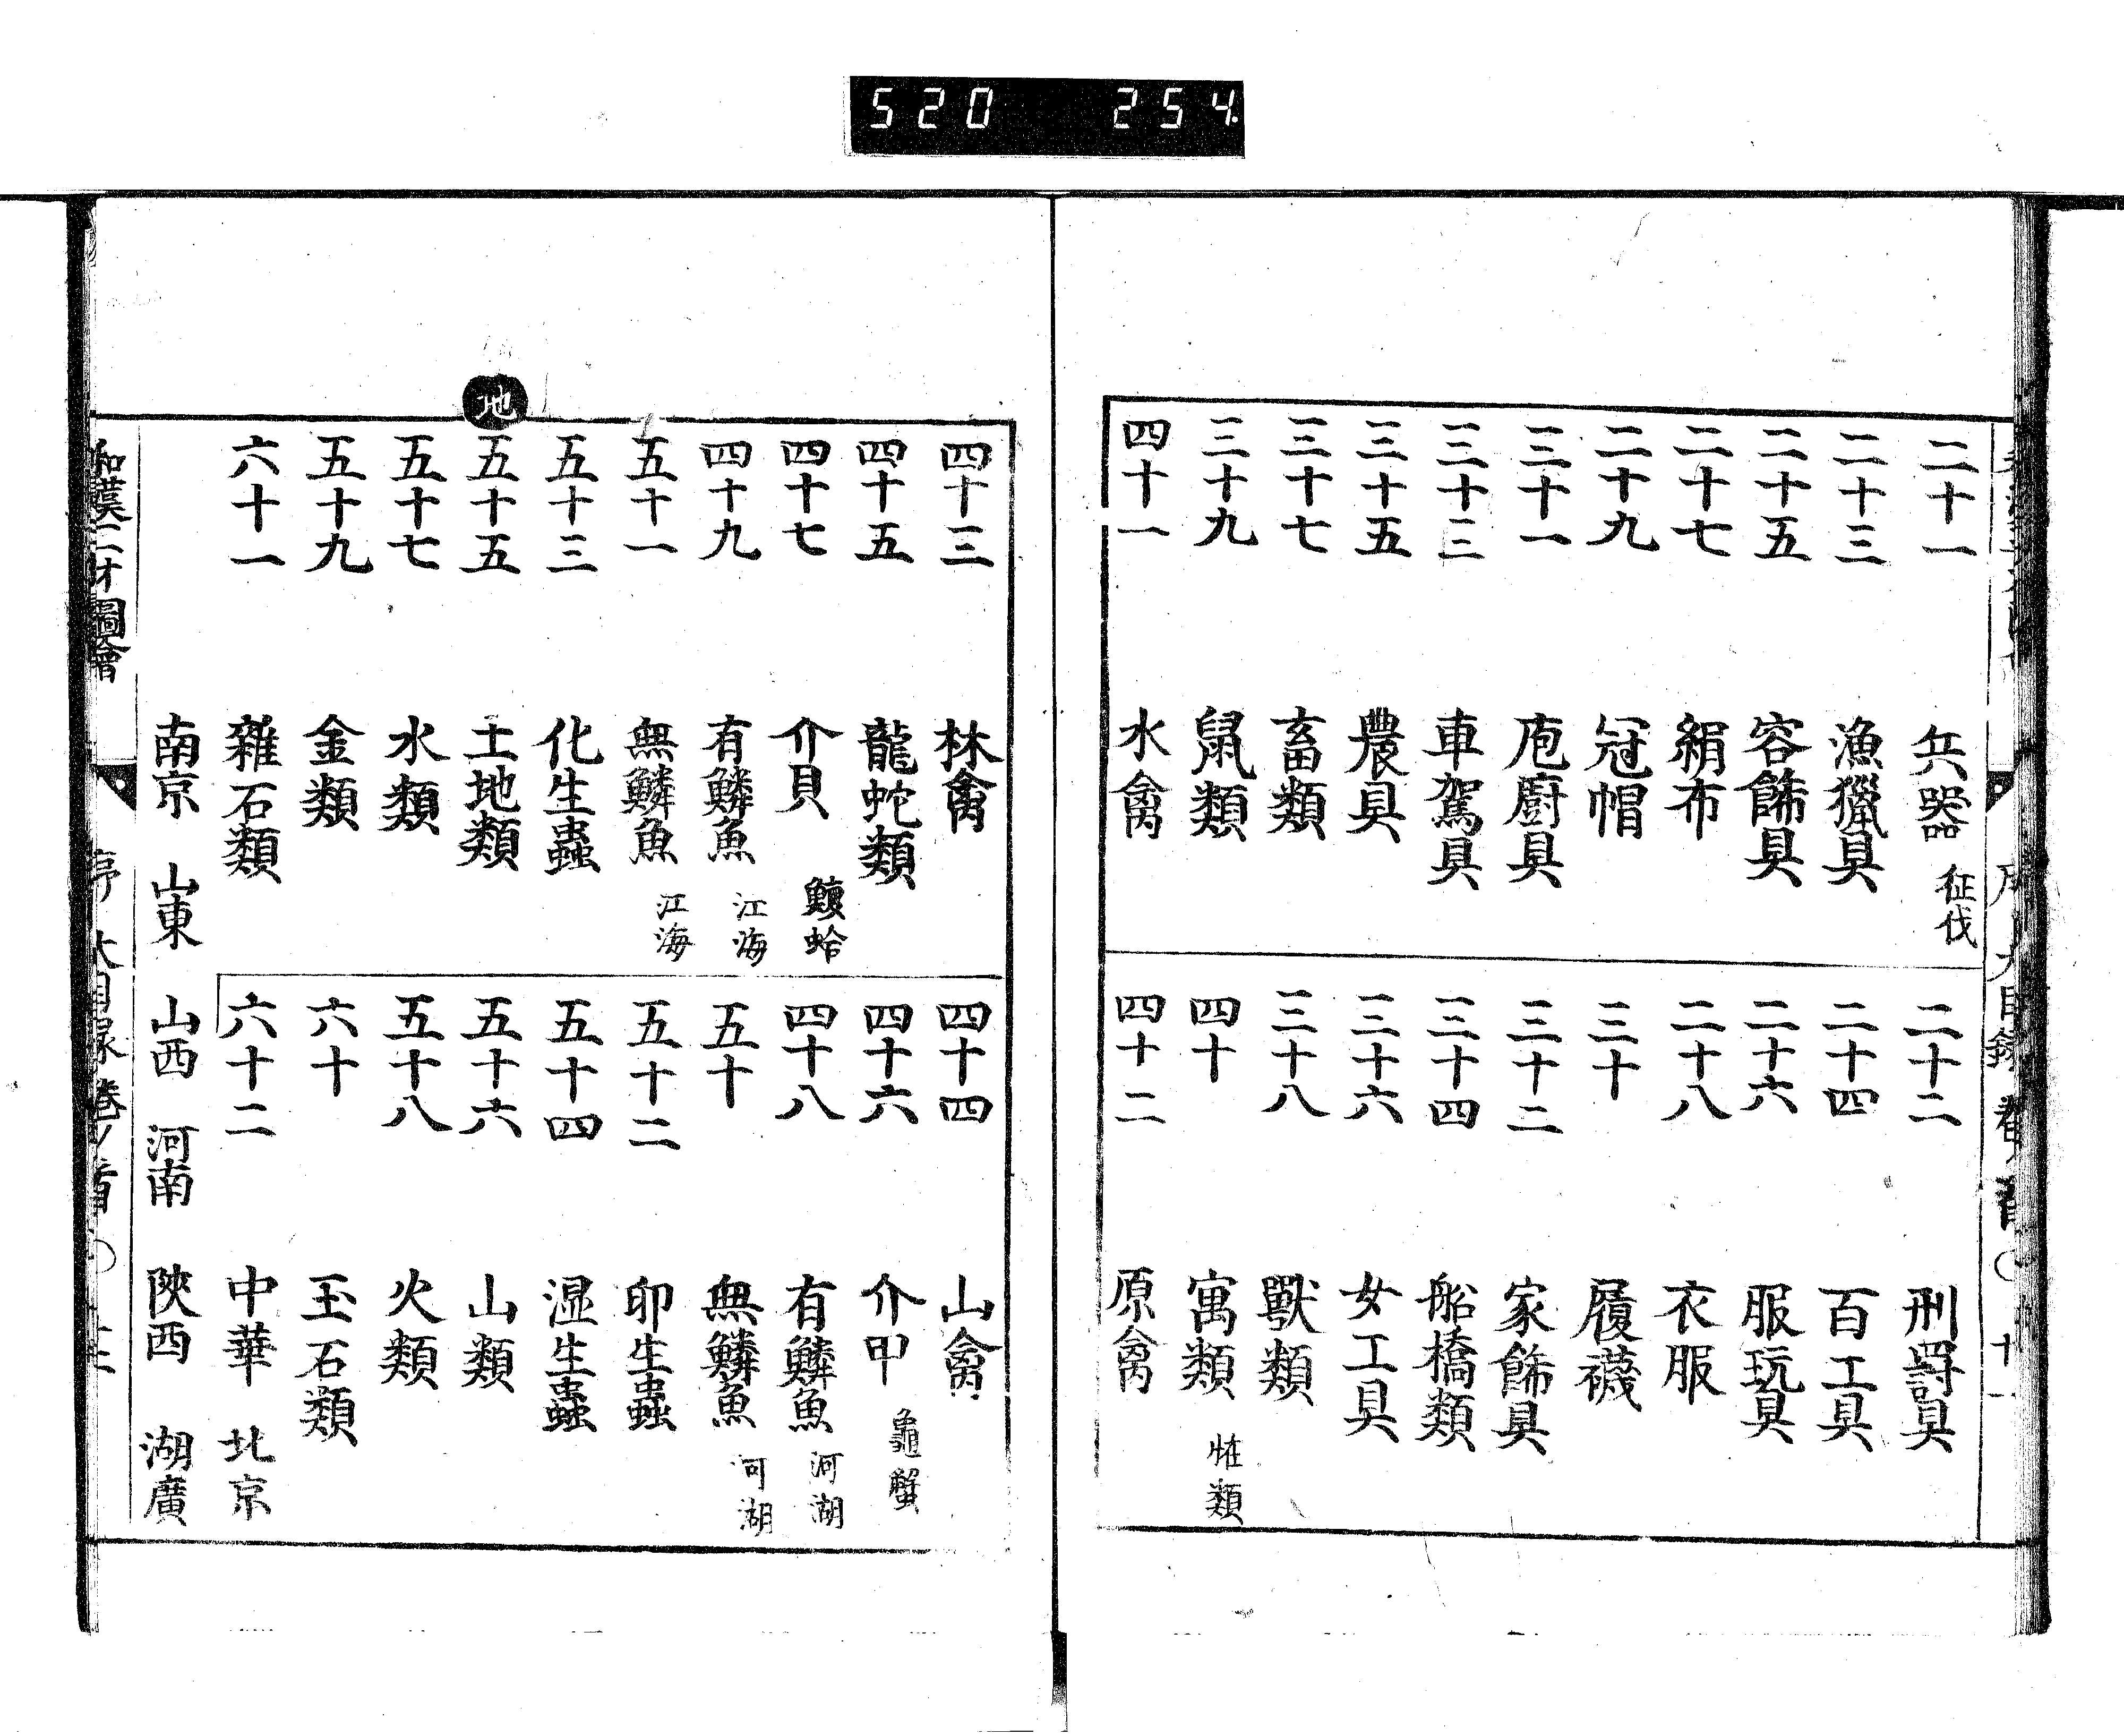 520 254.
二十一 兵器 征伐
二十三 漁獵具
二十五 容飾具
二十七 絹布
二十九 冠帽
三十一 庖廚具
三十三 車駕具
三十五 農具
三十七 畜類
三十九 鼠類
四十一 水禽
二十二 刑罸具
二十四 百工具
二十六 服玩具
二十八 衣服
三十 履襪
三十二 家飾具
三十四 船橋類
三十六 女工具
三十八 獸類
四十 寓類 恠類
四十二 原禽
地
四十三 林禽
四十五 龍蛇類
四十七 介貝 鰒蛤
四十九 有鱗魚 江海
五十一 無鱗魚 江海
五十三 化生蟲
五十五 土地類
五十七 水類
五十九 金類
六十一 雜石類
四十四 山禽
四十六 介甲 龜蟹
四十八 有鱗魚 河湖
五十 無鱗魚 河湖
五十二 卵生蟲
五十四 湿生蟲
五十六 山類
五十八 火類
六十 玉石類
六十二 中華 北京
南京 山東 山西 河南 陝西 湖廣
和漢三才圖會 大目録 卷ノ首